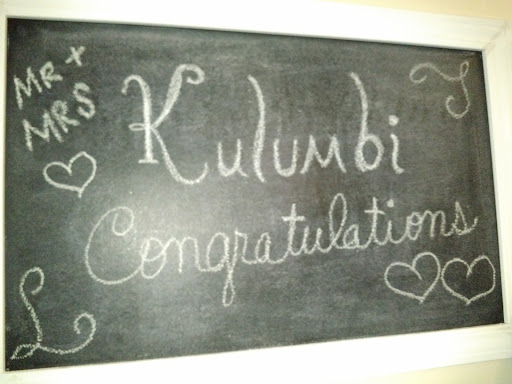 Mr +
MRS
Kulumbi
Congratulations
J
L